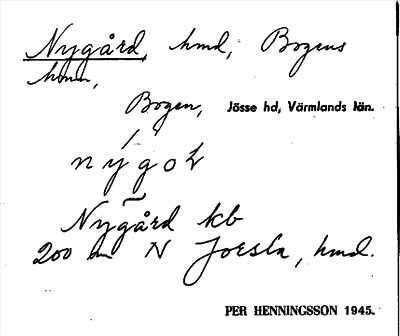 Nygård, hmd, Bogens
hmn,
Bogen, Jösse hd, Värmlands län.
Nygård kb
200 m N Joesla, hmd.
PER HENNINGSSON 1945.